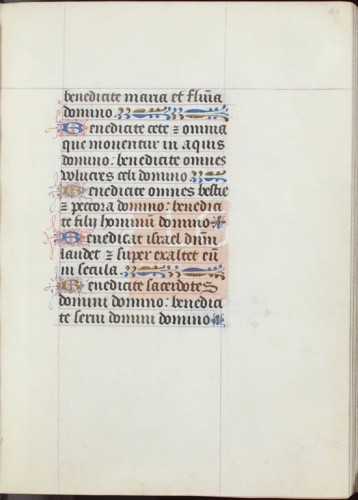 benedicite maria et flūīa
domino.
Benedicite cete ⁊ omnia
que mouentur in aquis
domino: benedicite omnes
volucres celi domino.
Benedicite omnes bestie
⁊ pecora domino: benedici
te filij hominū domino
Benedicat israel dn̄m
laudet ⁊ super exaltet eū
in secula.
Benedicite sacerdotes
domini domino: benedici
te serui domini domino